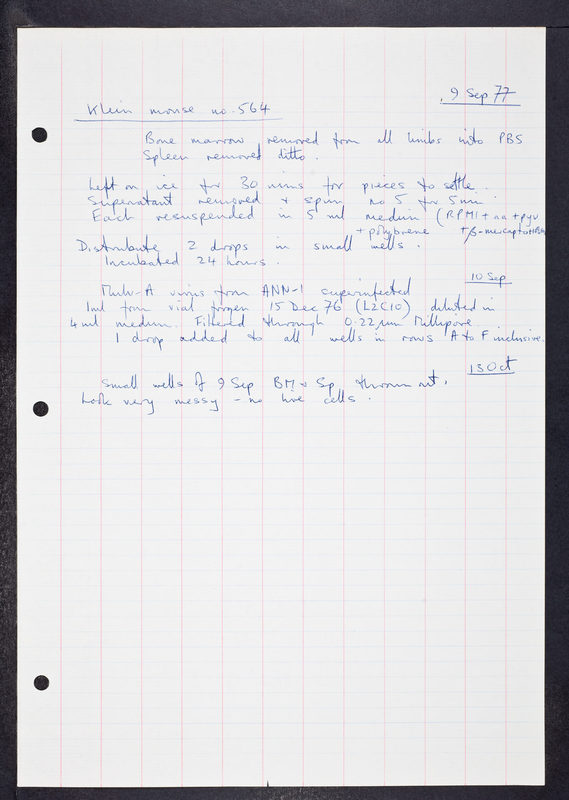 9 Sep 77
Klein mouse no. 564
Bone marrow removed from all limbs into PBS
Spleen removed ditto.
Left on ice for 30 mins for pieces to settle.
Supernatant removed & spun no 5 for 5 min
Each resuspended in 5 ml medium (RPMI + aa + pyr
+ polybrene + β-mercaptoethanol
Distribute 2 drops in small wells.
Incubated 24 hours.
10 Sep
MuLV-A virus from ANN-1 superinfected
1ml from vial frozen 15 Dec 76 (L2C10) diluted in
4 ml medium. Filtered through 0.22 µm Millipore
1 drop added to all wells in rows A to F inclusive.
13 Oct
Small wells of 9 Sep BM & Sp thrown out.
Look very messy - no live cells.